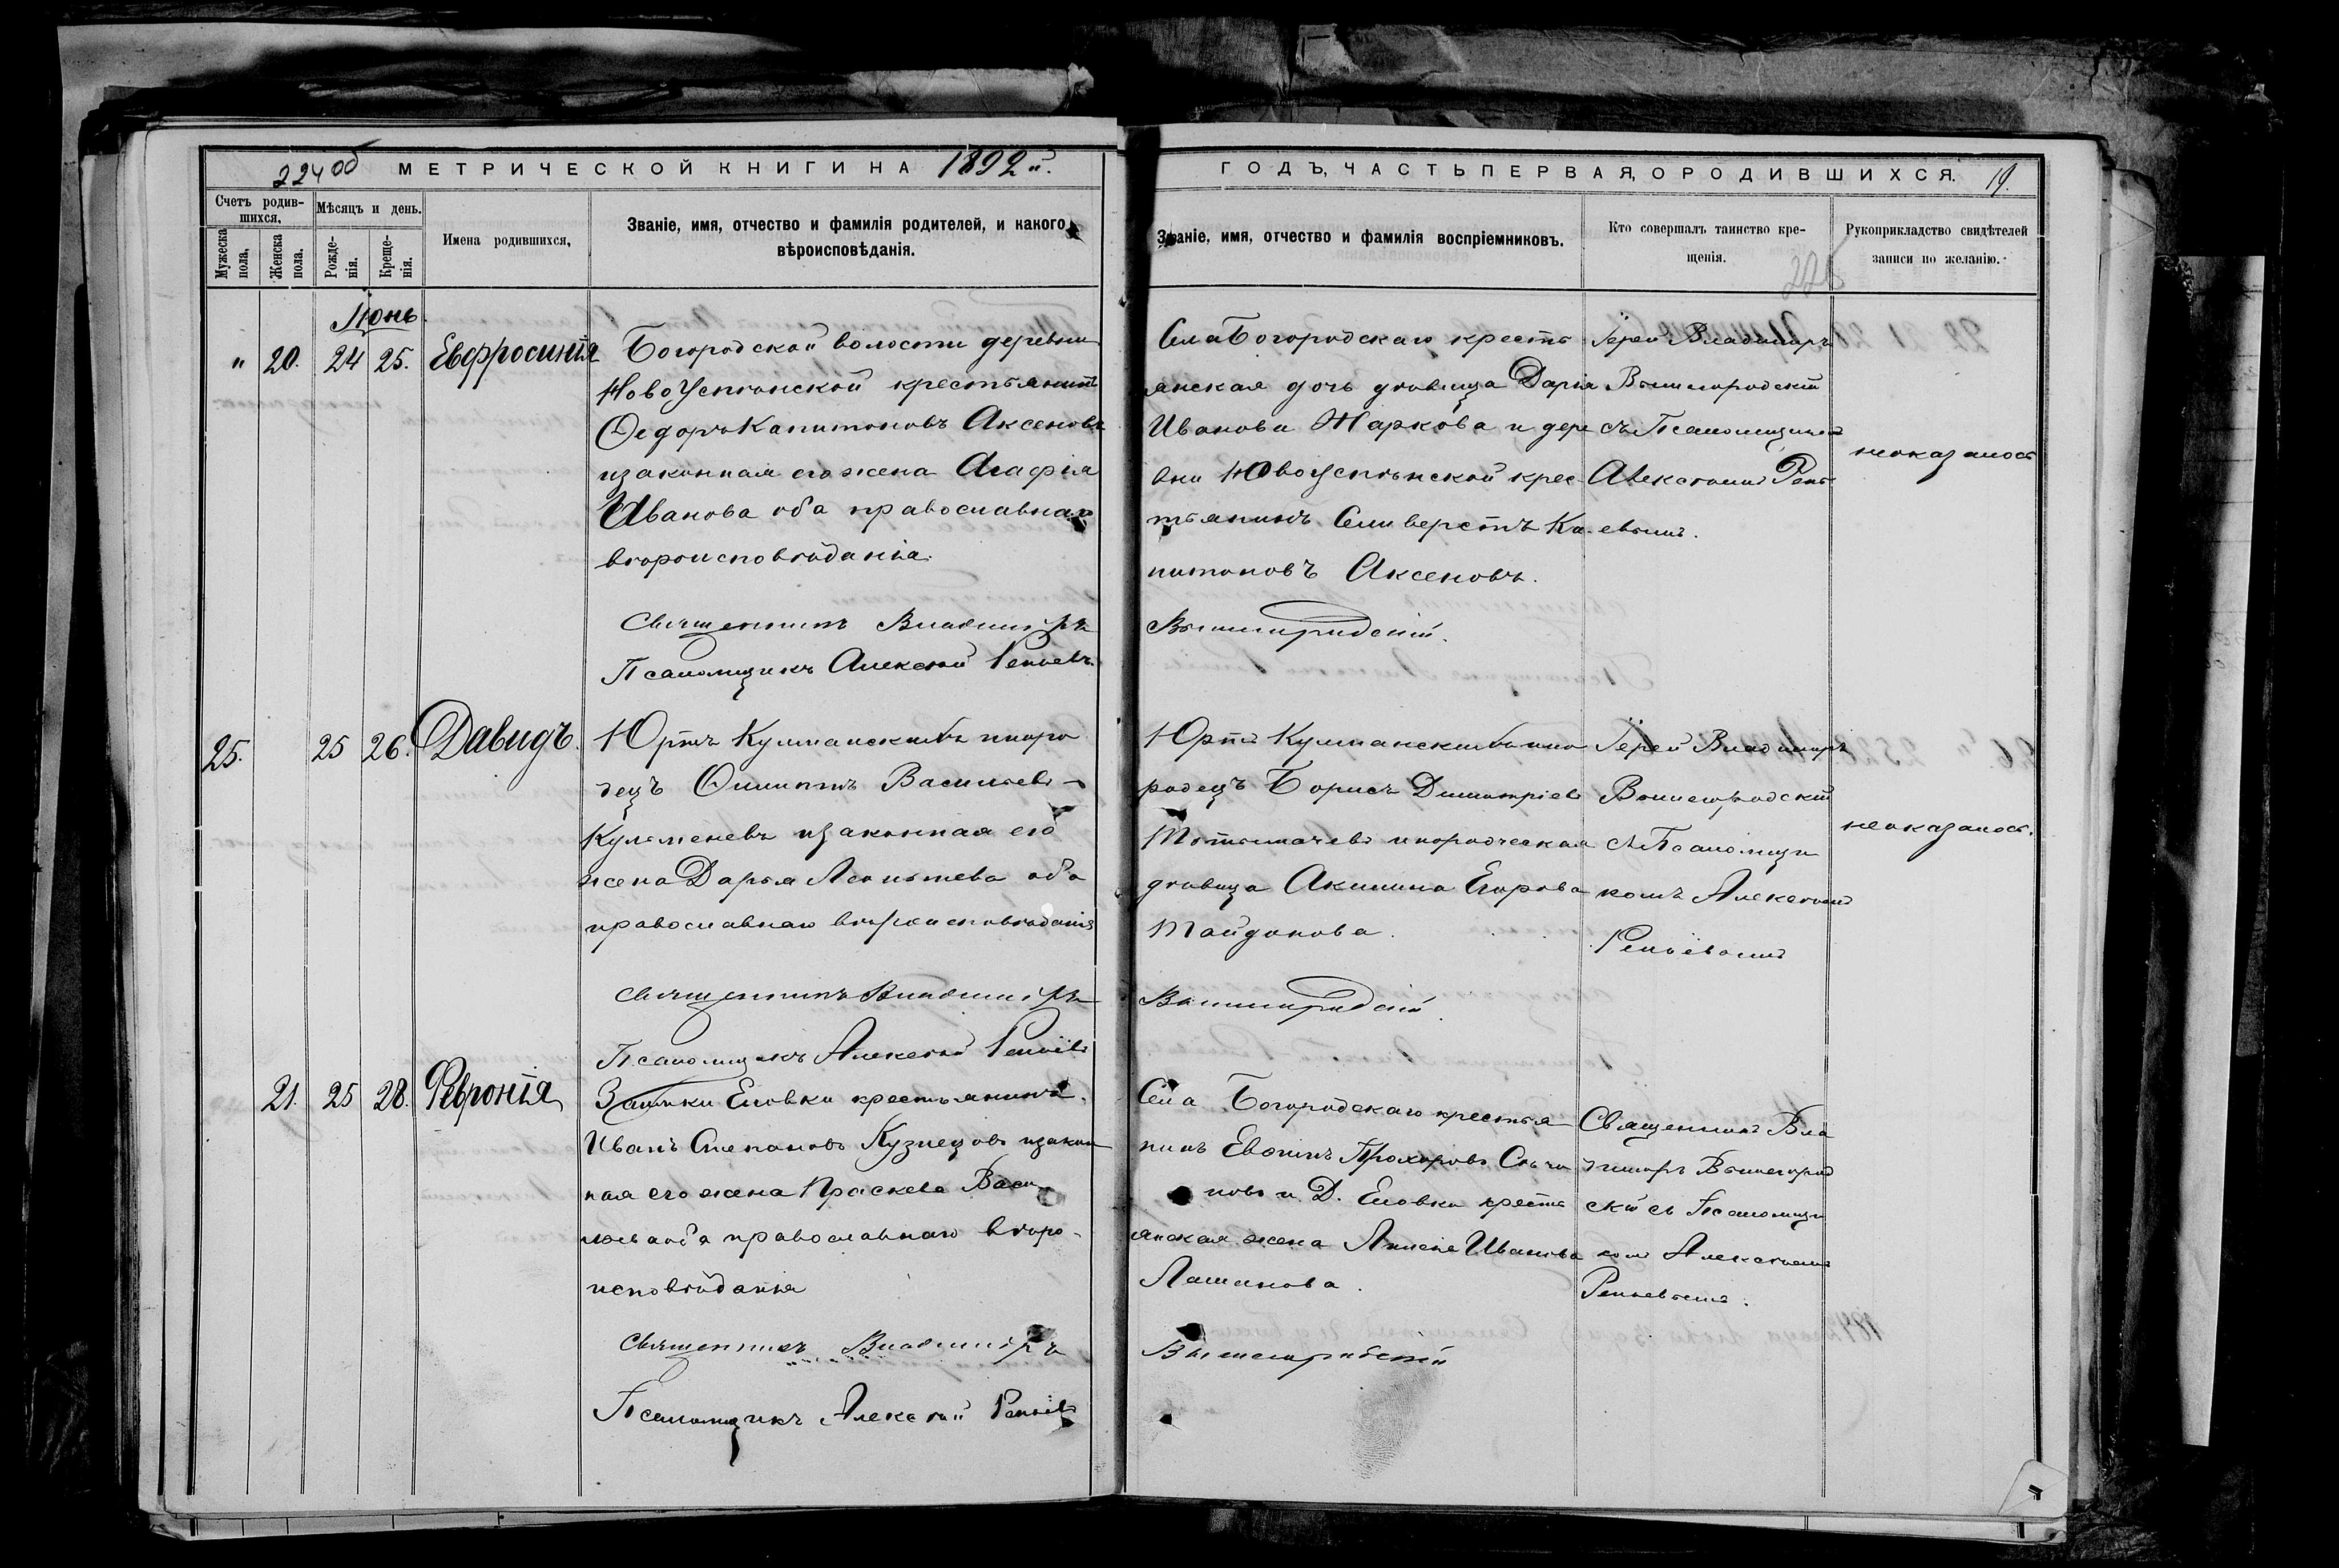 224об МЕТРИЧЕСКОЙ КНИГИ НА 1892й.
Счетъ родившихся,
Мѣсяцъ и день.
Мужеска пола,
Женска пола.
Рожденія.
Крещенія.
Имена родившихся,
Званіе, имя, отчество и фамилія родителей, и какого
вѣроисповѣданія.
Іюнь.
" 20. 24 25. Евфросинія
Богородской волости деревни
Ново Успенской крестьянинъ
Ѳедоръ Капитоновъ Аксеновъ
и законная его жена Агафія
Иванова оба православнаго
вѣроисповѣданія.
Священникъ Владиміръ
Псаломщикъ Алексѣй
25. 25 26. Давидъ.
Юртъ инородецъ
Филиппъ Васильевъ
и законная его
жена Дарья Леонтьева оба
православнаго вѣроисповѣданія
Священникъ Владиміръ
Псаломщикъ Алексѣй
21. 25 28. Февронія
Заимки Еловки крестьянинъ
Иванъ Степановъ Кузнецовъ и законная
его жена Праскева Васильева
оба православнаго вѣроисповѣданія
Священникъ Владиміръ
Псаломщикъ Алексѣй
ГОДЪ, ЧАСТЬ ПЕРВАЯ, О РОДИВШИХСЯ. 19.
Званіе, имя, отчество и фамилія воспріемниковъ.
Кто совершалъ таинство крещенія.
Рукоприкладство свидѣтелей
записи по желанію.
225
Села Богородскаго крестьянская
дочь дѣвица Дарія
Иванова Жаркова и деревни
Ново Успѣнской крестьянинъ
Селиверстъ Капитоновъ
Аксеновъ.
Іерей Владиміръ
Вышегородскій
съ Псаломщикомъ
Алексѣемъ
неоказалось
Вышегородскій.
Юртъ инородецъ
Борисъ Димитріевъ
инородческая
дѣвица Акилина Егорова
Тайдонова.
Іерей Владиміръ
Вышегородскій
съ Псаломщикомъ
Алексѣемъ
неоказалось.
Вышегородскій.
Села Богородскаго крестьянинъ
Прохоровъ
и Д. Еловки крестьянская
жена Иванова
Лашанова.
Священникъ Владиміръ
Вышегородскій
съ Псаломщикомъ
Алексѣемъ
Вышегородскій